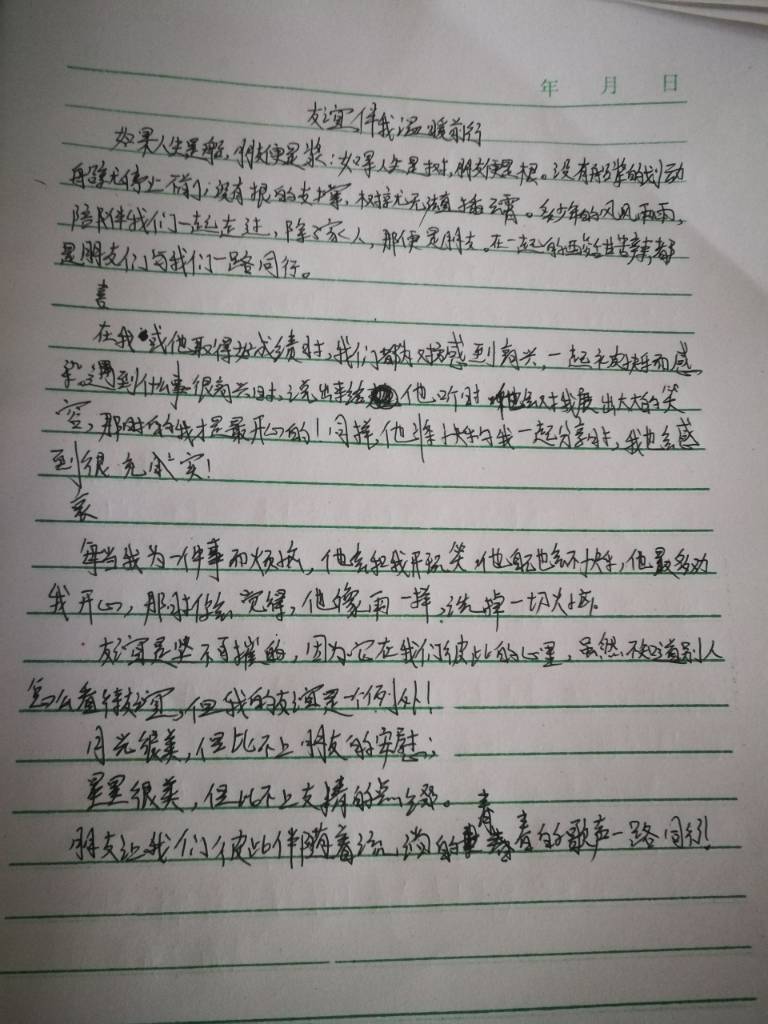 年 月 日
友谊伴我温暖前行
如果人生是船,朋友便是桨;如果人生是树,朋友便是根。没有船桨的划动
船停止不前;没有根的支撑,树无法直插云霄。年少的风风雨雨,
陪伴我们一起走过,除了家人,那便是朋友。在一起的酸甜苦辣都
是朋友们与我们一路同行。
喜
在我或他取得好成绩时,我们都为对方感到高兴,一起为快乐而感
遇到什么事很高兴时,说出来给他,他听时他会对我展出大大的笑
容,那时的我才是最开心的!同样,他将快乐与我一起分享时,我也会感
到很充实!
哀
每当我为一件事而烦恼,他会和我开玩笑,他也会不快乐,他最多劝
我开心,那时你会觉得,他像雨一样,洗掉一切烦恼。
友谊是坚不可摧的,因为它在我们彼此的心里,虽然不知道别人
怎么看待友谊,但我的友谊是一个例外!
月光很美,但比不上朋友的安慰;
星星很美,但比不上友情的点缀。
朋友让我们彼此伴随着流淌的青春的歌声一路同行!